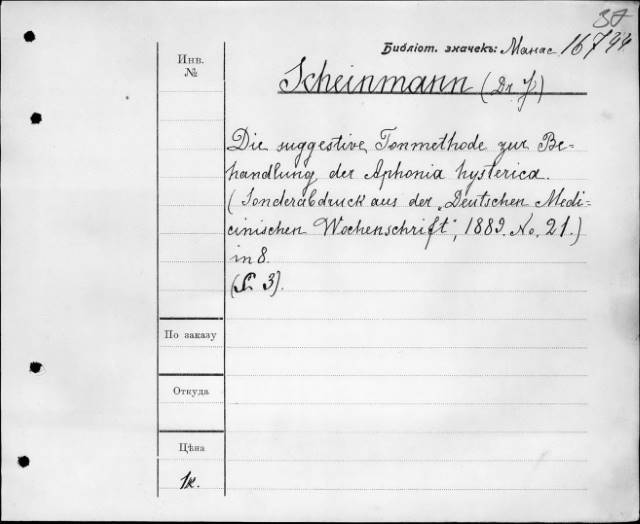 37
Библіот. значекъ: Манас 16744
Инв.
№
Scheinmann (Dr J.)
Die suggestive Tonmethode zur Be-
handlung der Aphonia hysterica.
(Sonderabdruck aus der „Deutschen Medi-
cinischen Wochenschrift", 1889. No. 21.)
in 8.
3).
По заказу
Откуда
Цѣна
1к.